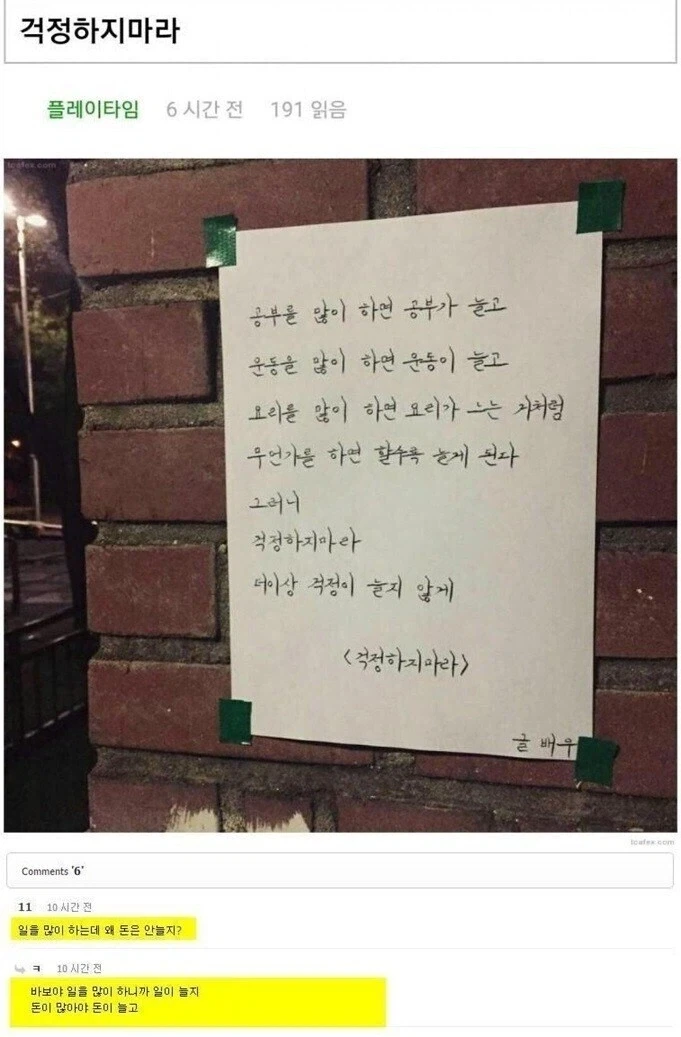 걱정하지마라
플레이타임 6 시간 전 191 읽음
icafex.com
공부를 많이 하면 공부가 늘고
운동을 많이 하면 운동이 늘고
요리를 많이 하면 요리가 느는 거처럼
무언가를 하면 할수록 늘게 된다
그러니
걱정하지마라
더이상 걱정이 늘지 않게
<걱정하지마라>
글 배우
icafex.com
Comments '6'
11 10 시간 전
일을 많이 하는데 왜 돈은 안늘지?
ㅋ 10 시간 전
바보야 일을 많이 하니까 일이 늘지
돈이 많아야 돈이 늘고